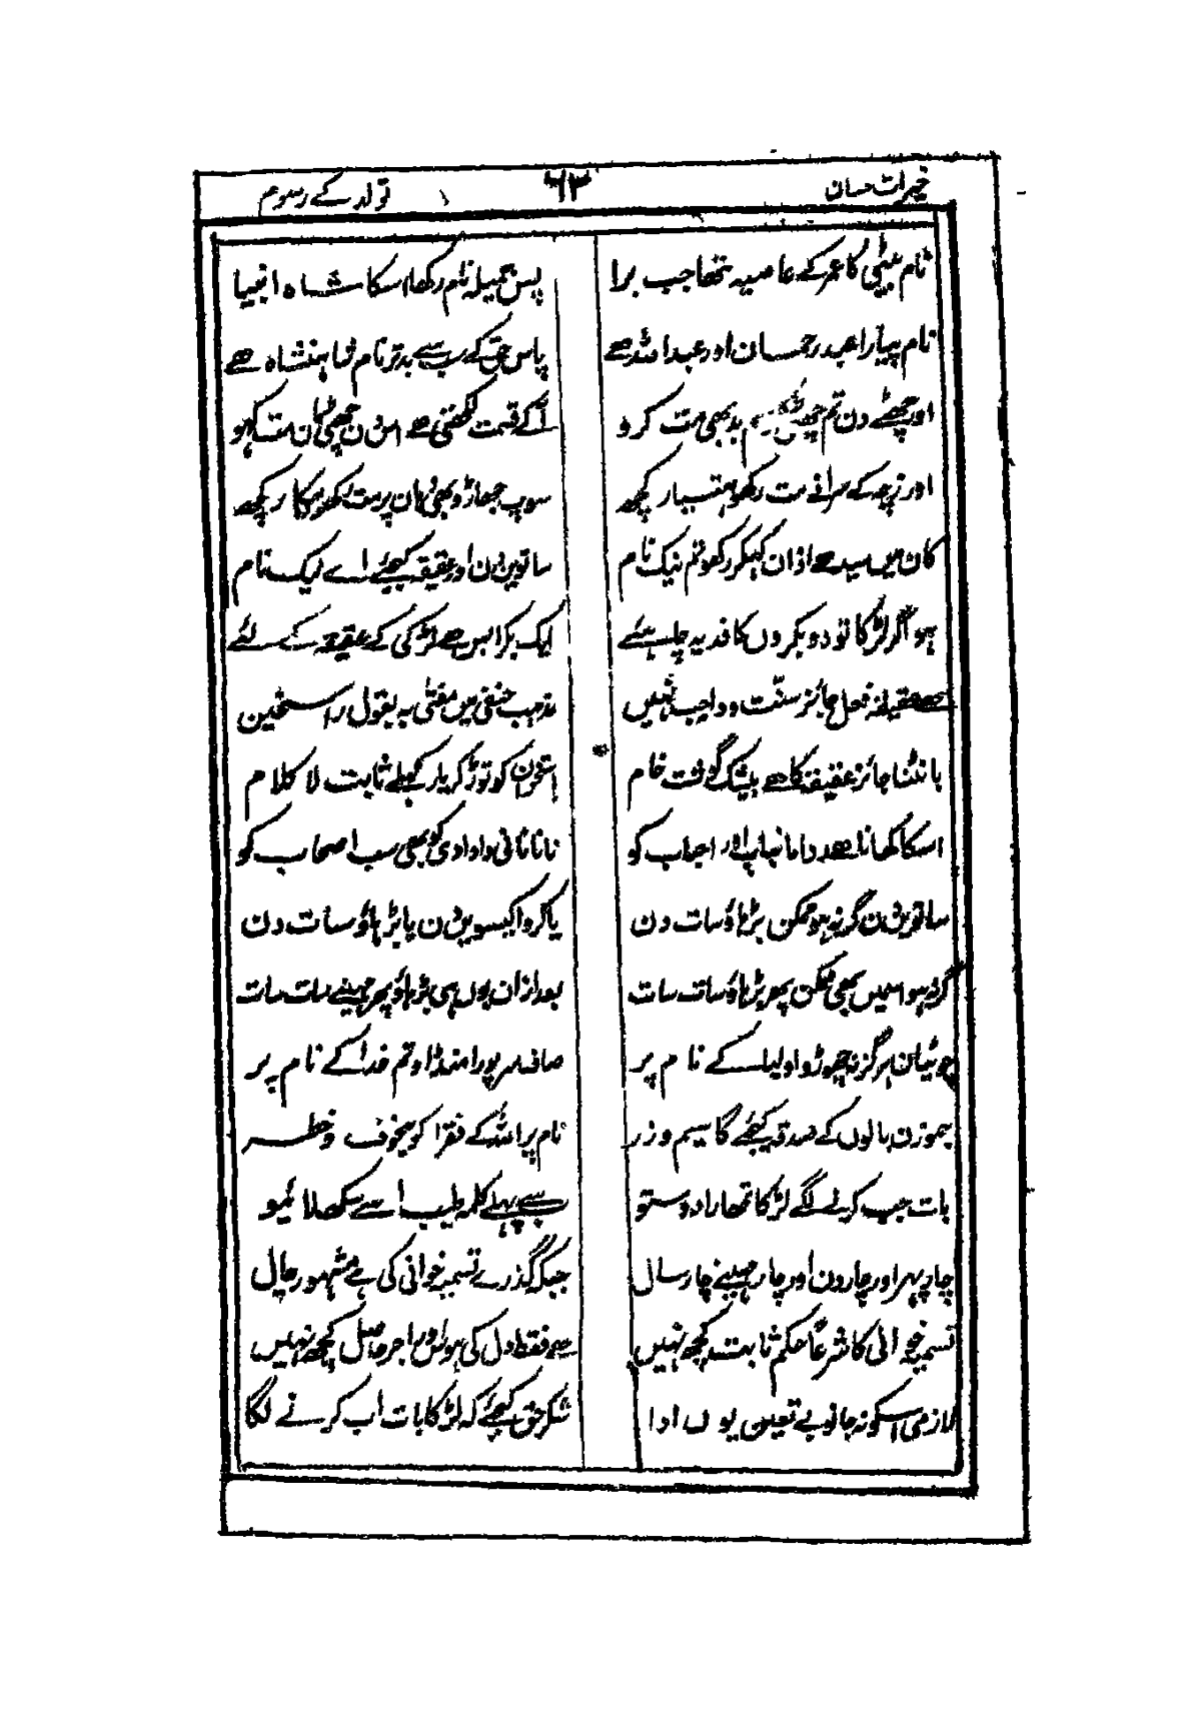 خیرات حسان ۶۳ تولد کے رسوم
نام بیٹی کا عمر کے عاصیہ تھا جب برا پس جمیلہ نام رکھا اسکا شاہ انبیا
نام پیارا عبد رحمان اور عبد اللہ ہے پاس حق کے سب سے بدتر نام شاہنشاہ ہے
اور چھٹے دن تم چھٹی کی رسم بد بھی مت کرو آکے قسمت لکھتی ہے اس دن چھٹی مت کہو
اور زچہ کے سرانے مت رکھو ہتیار کچھ سوپ جھاڑو بھی وہان پر مت رکھو مکار کچھ
کان میں سیدھے اذان کہکر رکھو تم نیک نام ساتویں دن اور عقیقہ کیجئے اے نیک نام
ہو اگر لڑکا تو دو بکروں کا فدیہ چاہئے ایک بکرا بس ہے لڑکی کے عقیقہ کے لئے
ہے عقیقہ فعل جائز سنّت و واجب نہیں مذہب حنفی میں مفتٰی بہ بقول راسخین
بانٹنا جائز عقیقہ کا ہے بیشک گوشت خام استخوان کو توڑ کر یا رکھلے ثابت لا کلام
اسکا کھانا ہے روا مانباپ اور احباب کو نانا نانی دادا دادی کو بھی سب اصحاب کو
ساتویں دن گر نہ ہو ممکن بڑہاؤ سات دن یا کرو اکیسویں دن یا بڑہاؤ سات دن
گر نہ ہو اسمیں بھی ممکن پھر بڑہاؤ سات سات بعد ازان یوں ہی بڑہاؤ پھر مہینے سات سات
چوٹیان ہرگز نہ چھوڑو اولیا کے نام پر صاف سر پورا منڈاؤ تم خدا کے نام پر
ہموزن بالوں کے صدقہ کیجئے گا سیم و زر نام پر اللہ کے فقرا کو بیخوف و خطر
بات جب کرنے لگے لڑکا تمھارا دوستو سب سے پہلے کلمہ طیب اسے سکھلائیو
چار پہر اور چار دن اور چار مہینے چار سال جبکہ گذرے تسمیہ خوانی کی ہے مشہور چال
تسمیہ خوانی کا شرعاً حکم ثابت کچھ نہیں ہے فقط دل کی ہوس اور اجر حاصل کچھ نہیں
لازمی اسکو نہ جانو بے تعین یوں ادا شکر حق کیجئے کہ لڑکا بات اب کرنے لگا